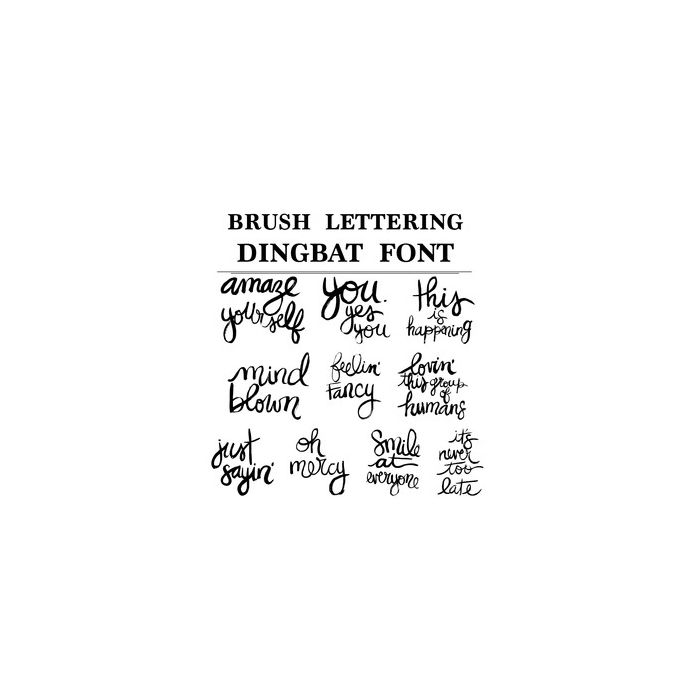 BRUSH LETTERING
DINGBAT FONT
amaze
yourself
you.
yes
you
this
is
happening
mind
blown
feelin'
fancy
lovin'
this group
of
humans
just
sayin'
oh
mercy
Smile
at
everyone
it's
never
too
late